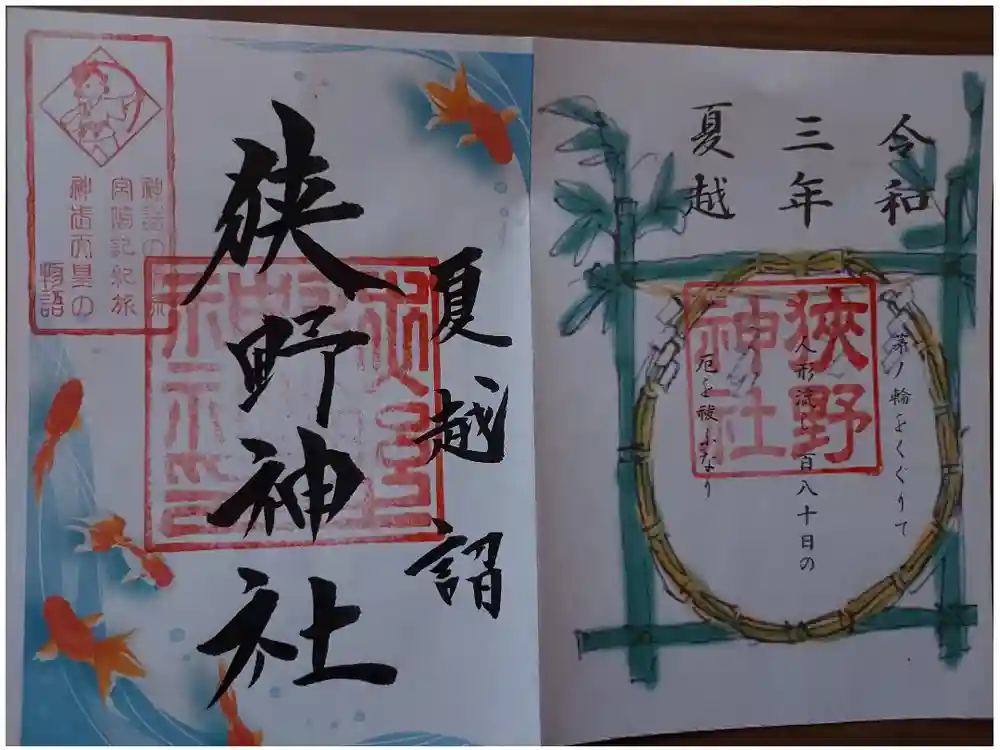 令和
三年
夏越
茅ノ輪をくぐりて
人形流し百八十日の
厄を祓ふなり
狹野
神社
夏越詣
狭野神社
神話の源流
宮崎記紀旅
神武天皇の
物語